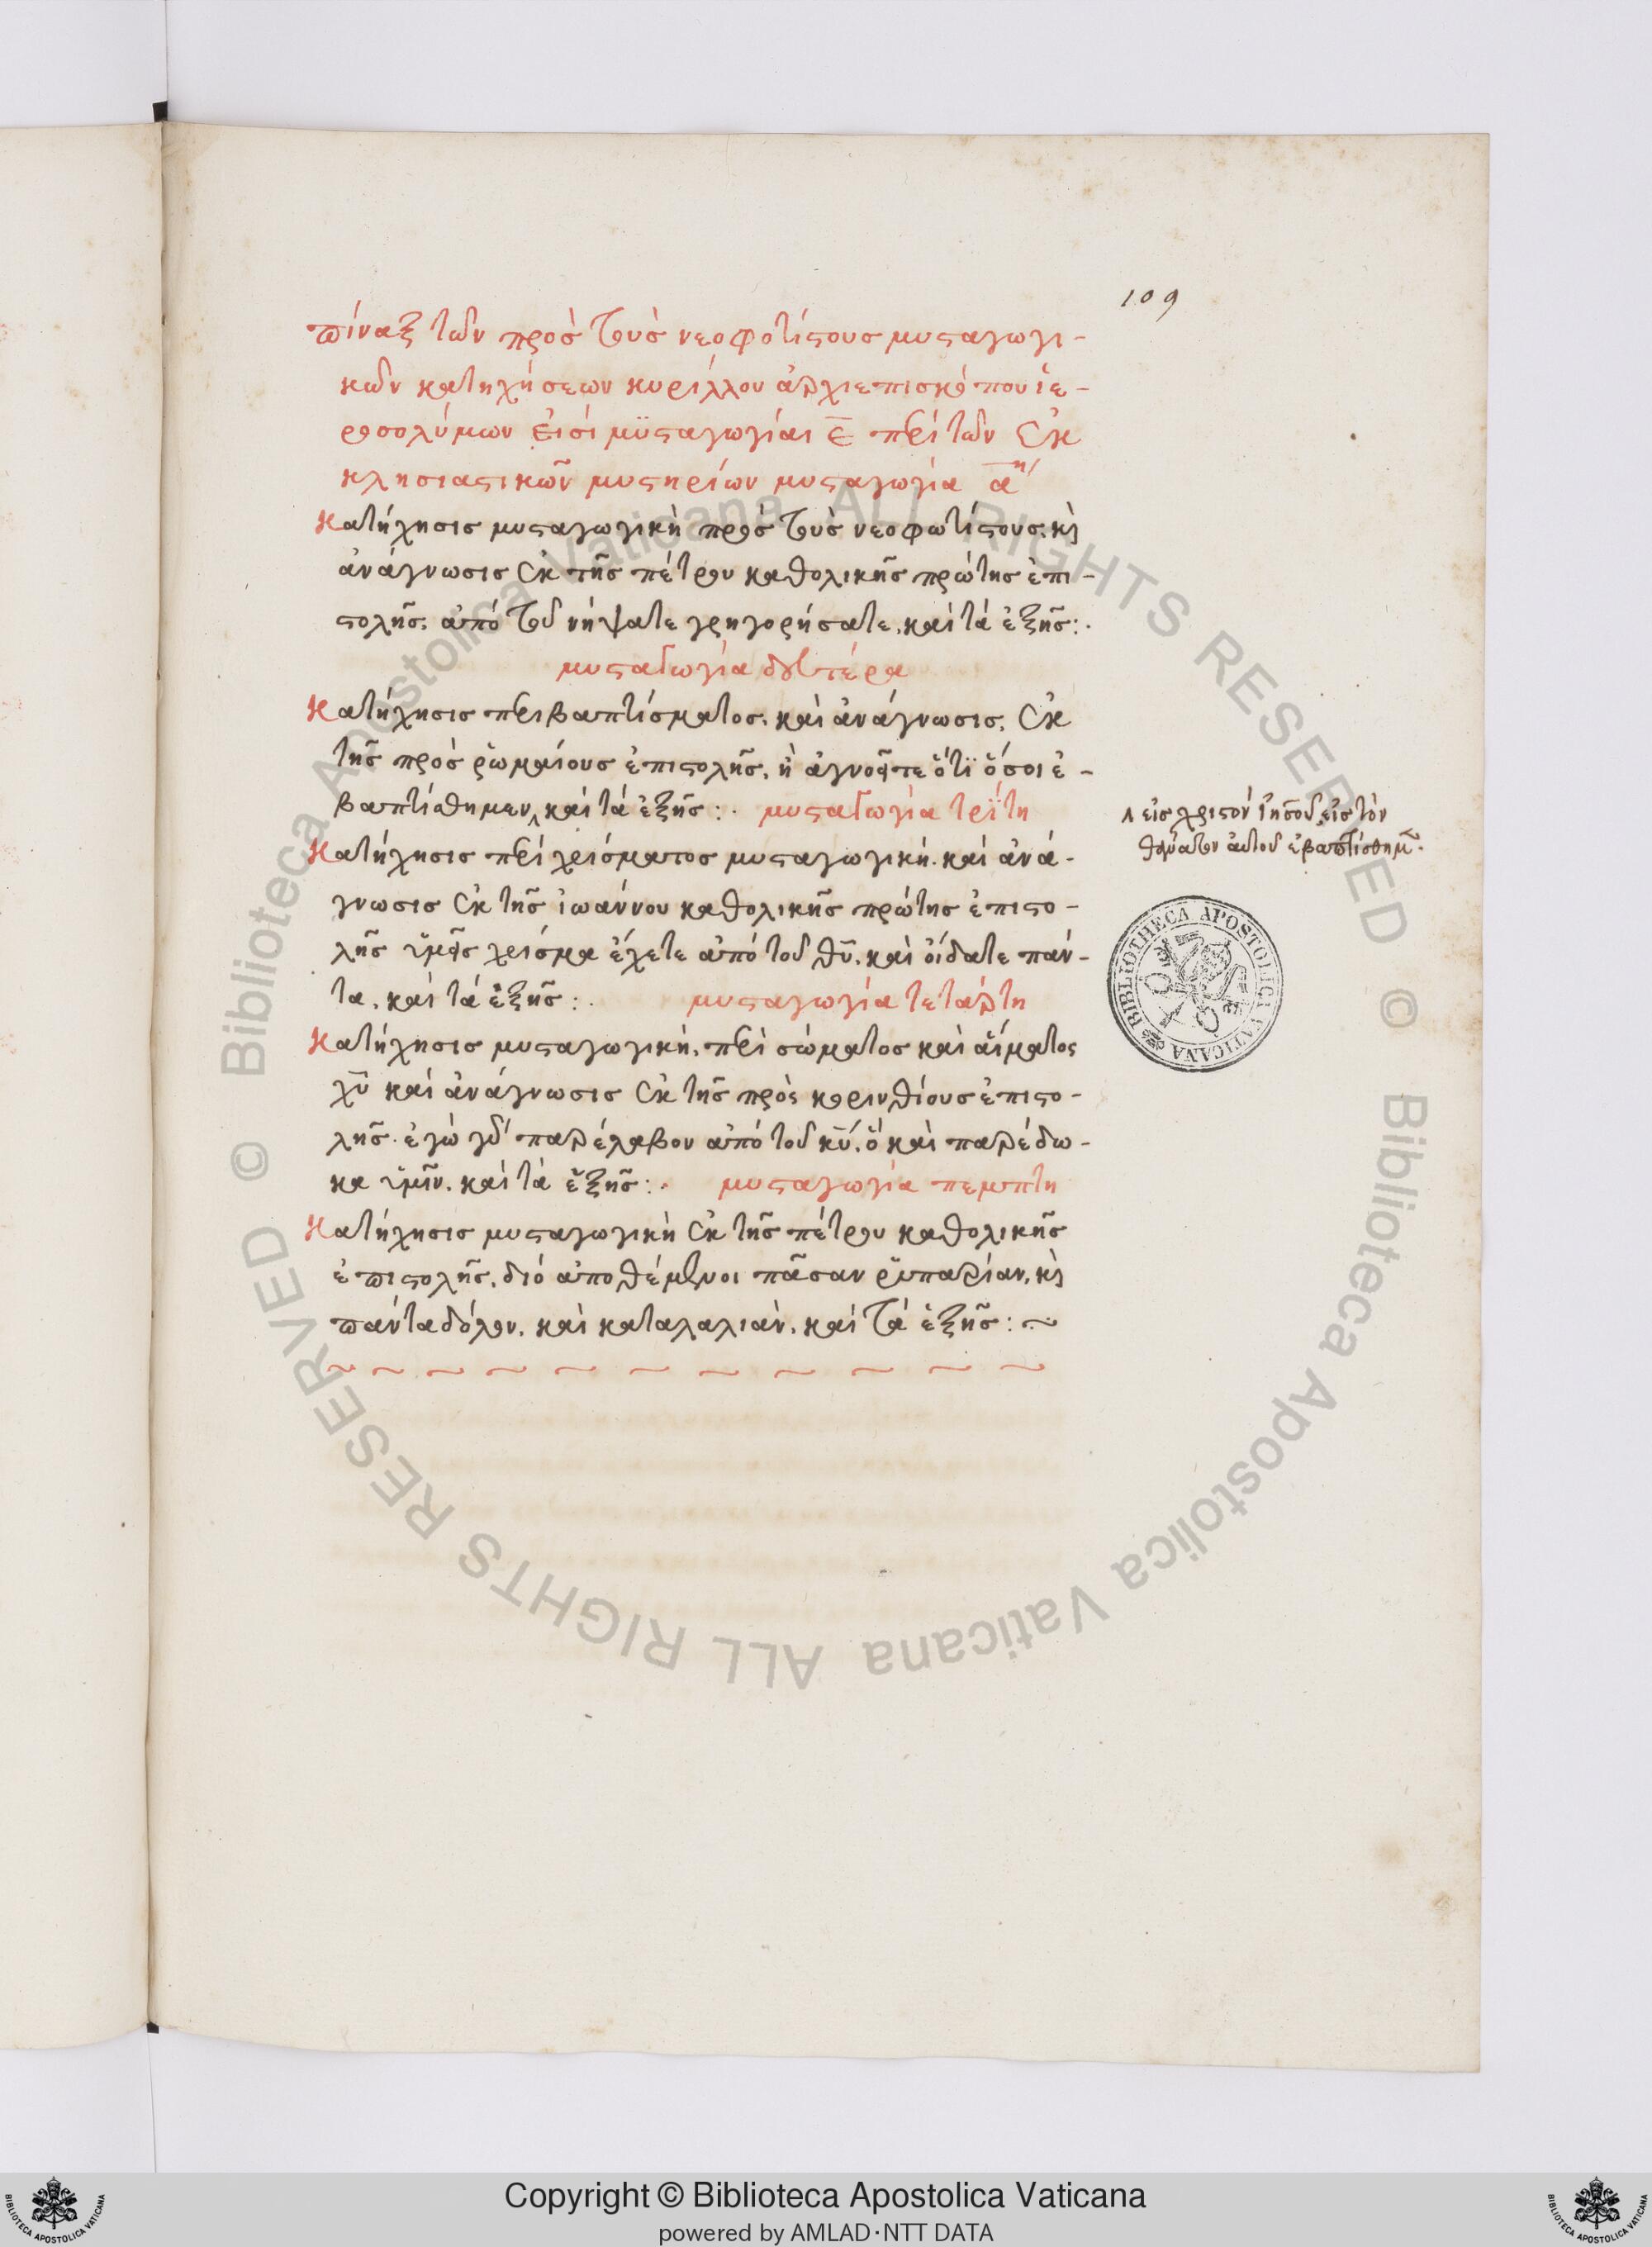 109
πίναξ τῶν πρὸσ τοὺσ νεοφοτίϛουσ μυϛαγωγι-
κῶν κατηχήσεων κυρίλλου ἀρχιεπισκόπου ἱε-
ροσολύμων εἰσί μϋϛαγωγίαι ε̅ περί τῶν ἐκ
κλησιαϛικῶν μυϛηρίων μυϛαγωγία α̅ η
Κατήχησισ μυϛαγωγικὴ πρὸσ τοὺσ νεοφωτίϛουσ. κὶ
ἀνάγνωσισ ἐκ τῆσ πέτρου καθολικῆσ πρώτησ ἐπι-
ϛολῆσ. ἀπό τοῦ νήψατε γρηγορήσατε. καὶ τά ἐξῆσ:.
μυϛαγωγία δευτέρα
Κατήχησισ περι βαπτίσματοσ. καὶ ἀνάγνωσισ. ἐκ
τῆσ πρὸσ ῥωμαίουσ ἐπιϛολῆσ. ἢ ἀγνοεῖτε ὅτϊ ὅσοι ἐ-
βαπτίσθημεν ͵ καὶ τά ἐξῆσ:. μυϛαγωγία τρίτη
Κατήχησισ περί χρίσματοσ μυϛαγωγική. καὶ ἀνά-
γνωσισ ἐκ τῆσ ἰωάννου καθολικῆσ πρώτησ ἐπιϛο-
λῆσ ὑμεῖσ χρίσμα ἔχετε ἀπό τοῦ θ̅υ̅. καὶ οἴδατε πάν-
τα. καὶ τά ἑξῆσ:. μυϛαγωγία τετάρτη
Κατήχησισ μυϛαγωγική. περὶ σώματοσ καὶ αἵματος
χ̅υ̅ καὶ ἀνάγνωσισ ἐκ τῆσ πρὸς κορινθίουσ ἐπιϛο-
λῆσ. ἐγὼ γὰρ παρέλαβον ἀπό τοῦ κ̅υ̅. ὅ καὶ παρέδω-
κα ὑμῖν. καὶ τὰ ἕξῆσ:. μυϛαγωγία πεμπτη
Κατήχησισ μυϛαγωγικὴ ἐκ τῆσ πέτρου καθολικῆσ
ἐπιϛολῆσ. διό ἀποθέμενοι πᾶσαν ῥυπαρίαν. κὶ
πάντα δόλον. καὶ καταλαλιὰν. καὶ τά ἑξῆσ:~
͵ εἰσ χριϛὸν ἰησοῦ εἰσ τὸν
θάνατον αὐτοῦ ἐβαπτίσθημ̅.
BIBLIOTHECA APOSTOLICA VATICANA
© Biblioteca Apostolica Vaticana ALL RIGHTS RESERVED
© Biblioteca Apostolica Vaticana ALL RIGHTS RESERVED
Copyright © Biblioteca Apostolica Vaticana
powered by AMLAD·NTT DATA
BIBLIOTECA APOSTOLICA VATICANA
BIBLIOTECA APOSTOLICA VATICANA